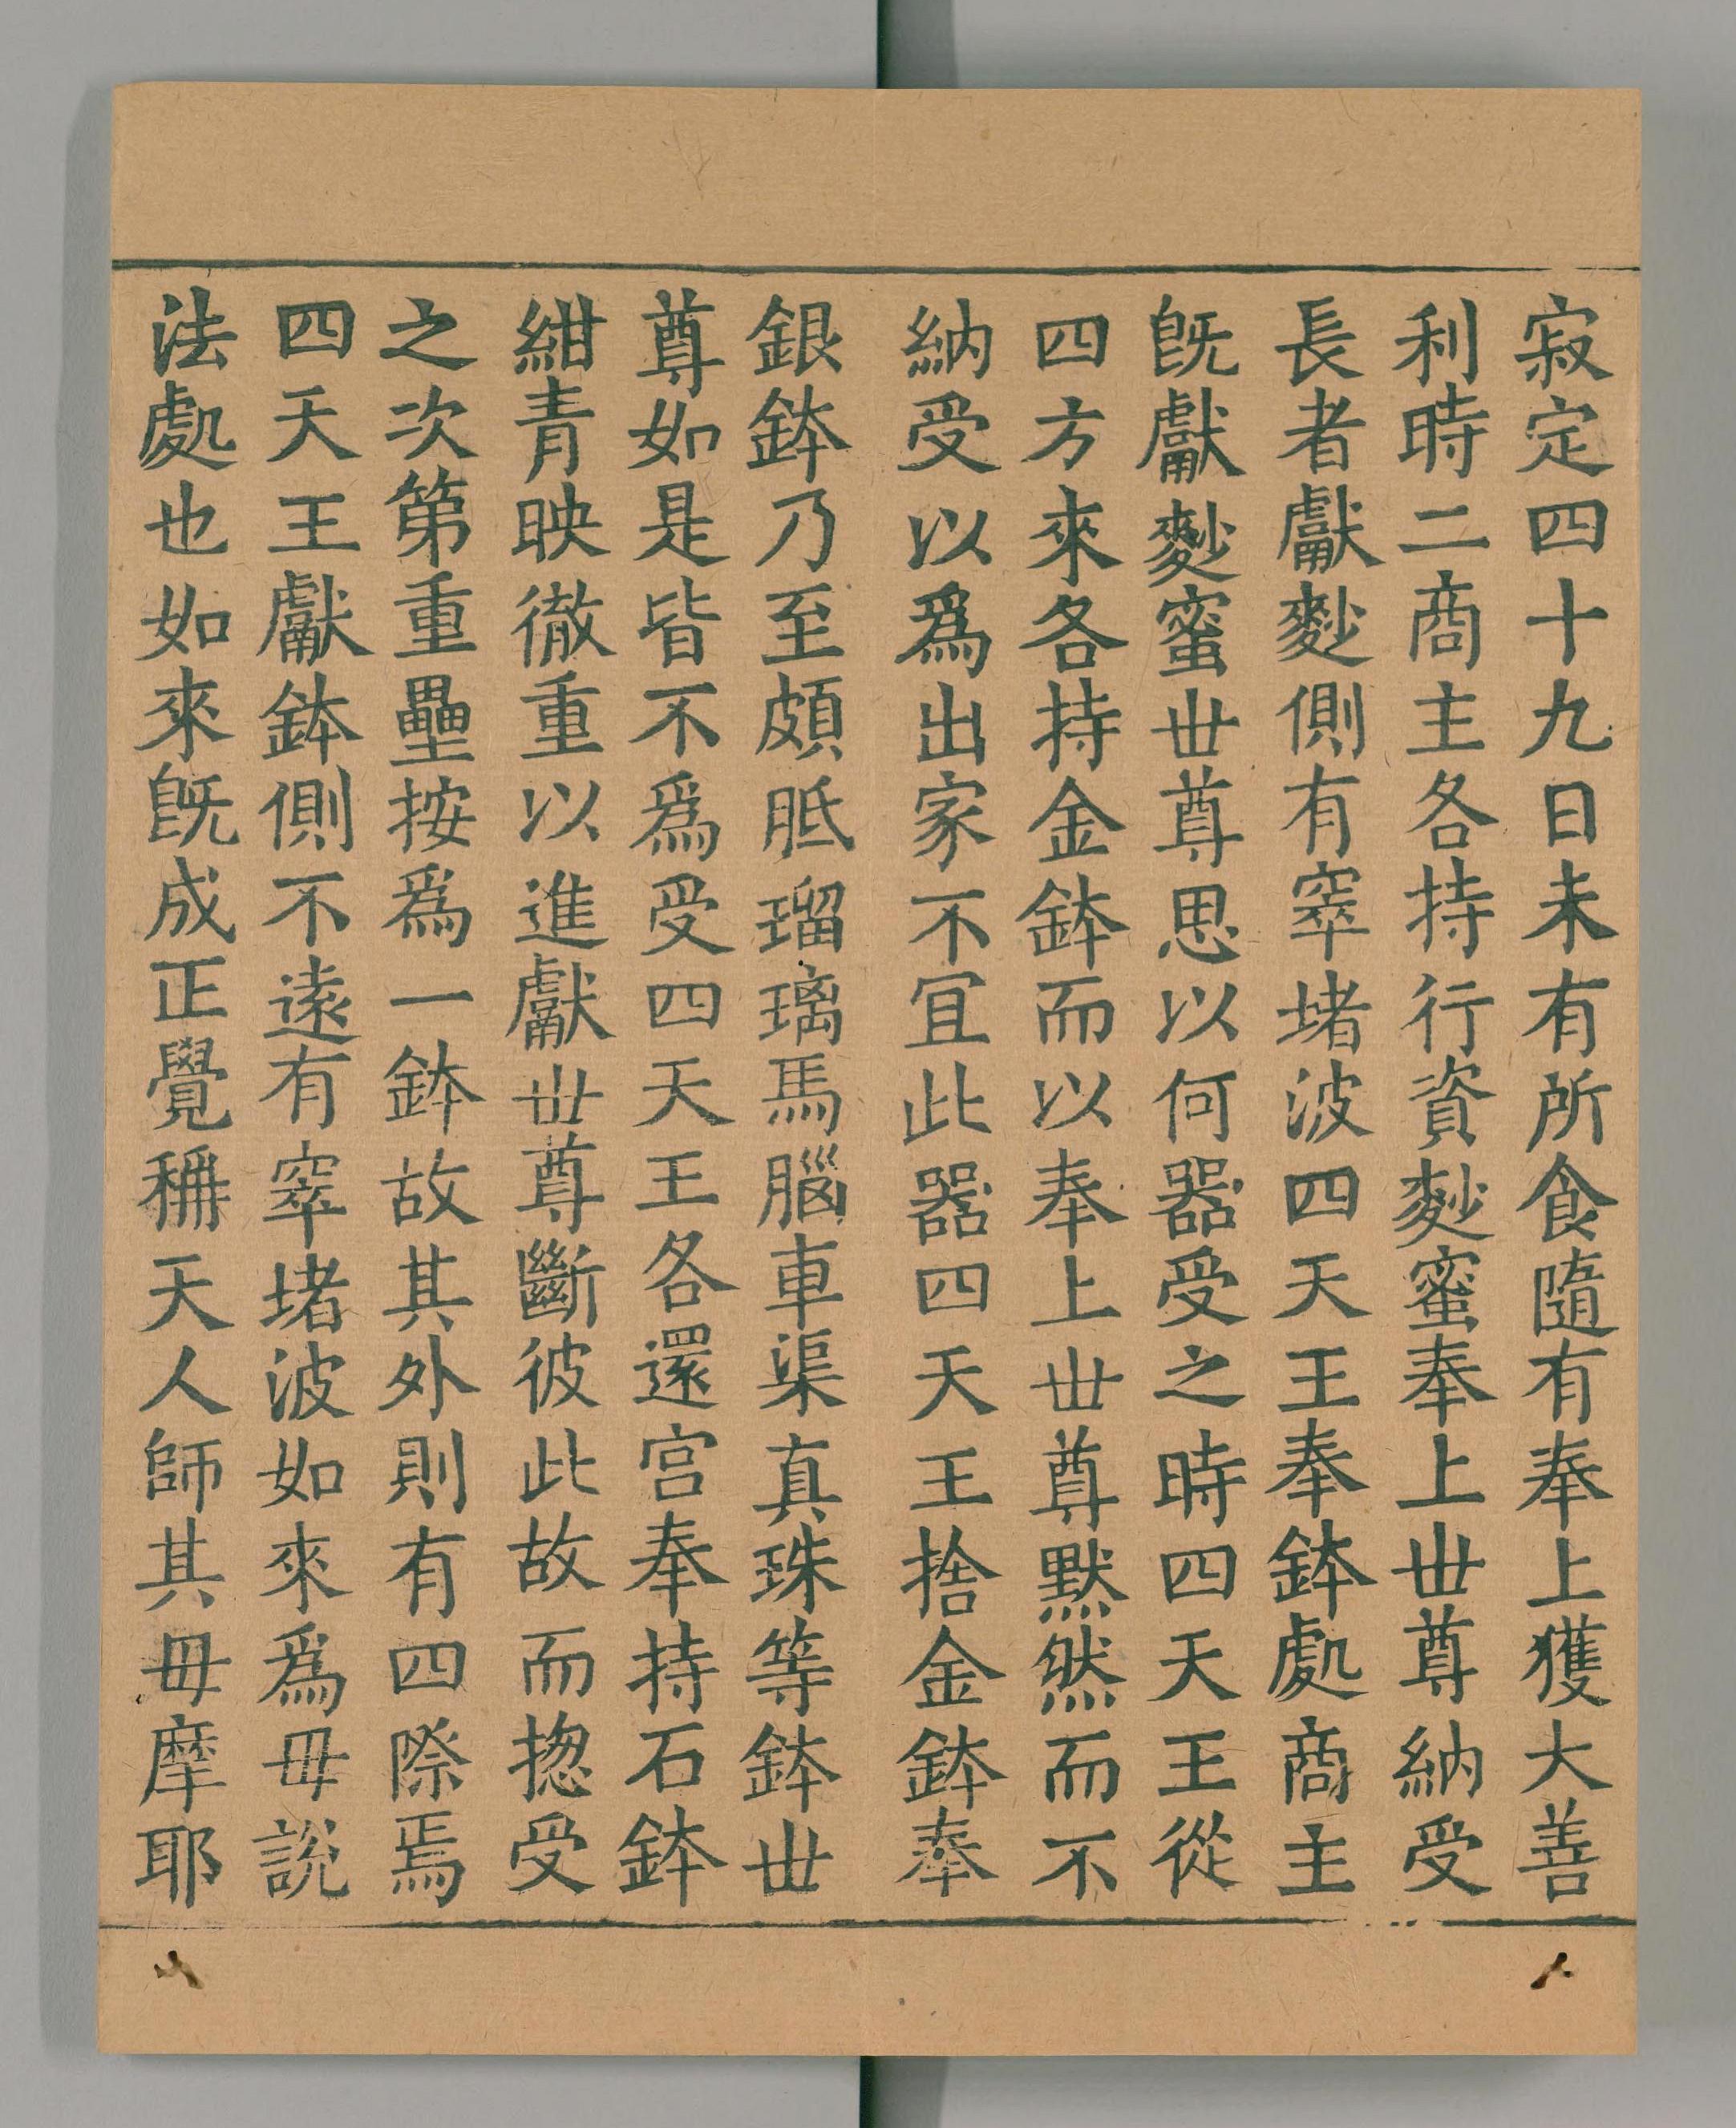 寂定四十九日未有所食隨有奉上獲大善
利時二商主各持行資麨蜜奉上世尊納受
長者獻麨側有窣堵波四天王奉鉢處商主
旣獻麨蜜世尊思以何器受之時四天王從
四方來各持金鉢而以奉上世尊默然而不
納受以爲出家不宜此器四天王捨金鉢奉
銀鉢乃至頗胝瑠璃馬腦車渠真珠等鉢世
尊如是皆不爲受四天王各還宮奉持石鉢
紺青映徹重以進獻世尊斷彼此故而揔受
之次第重壘按爲一鉢故其外則有四際焉
四天王獻鉢側不遠有窣堵波如來爲母說
法處也如來旣成正覺稱天人師其母摩耶